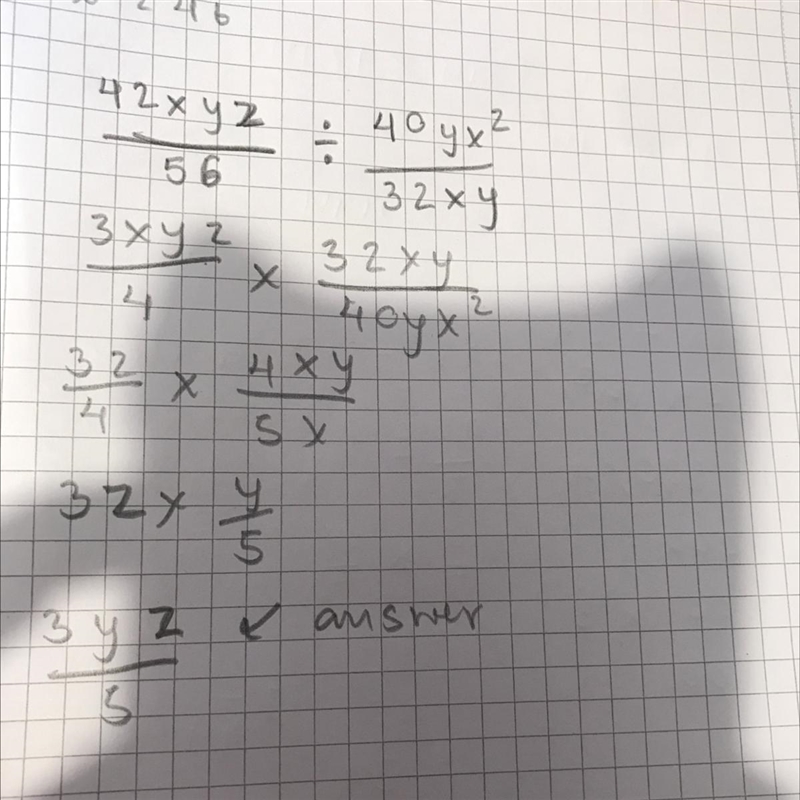 246
42xyz/56 ÷ 40yx²/32xy
3xyz/4 x 32xy/40yx²
3z/4 x 4xy/5x
3z x y/5
3yz/5 ↙ answer